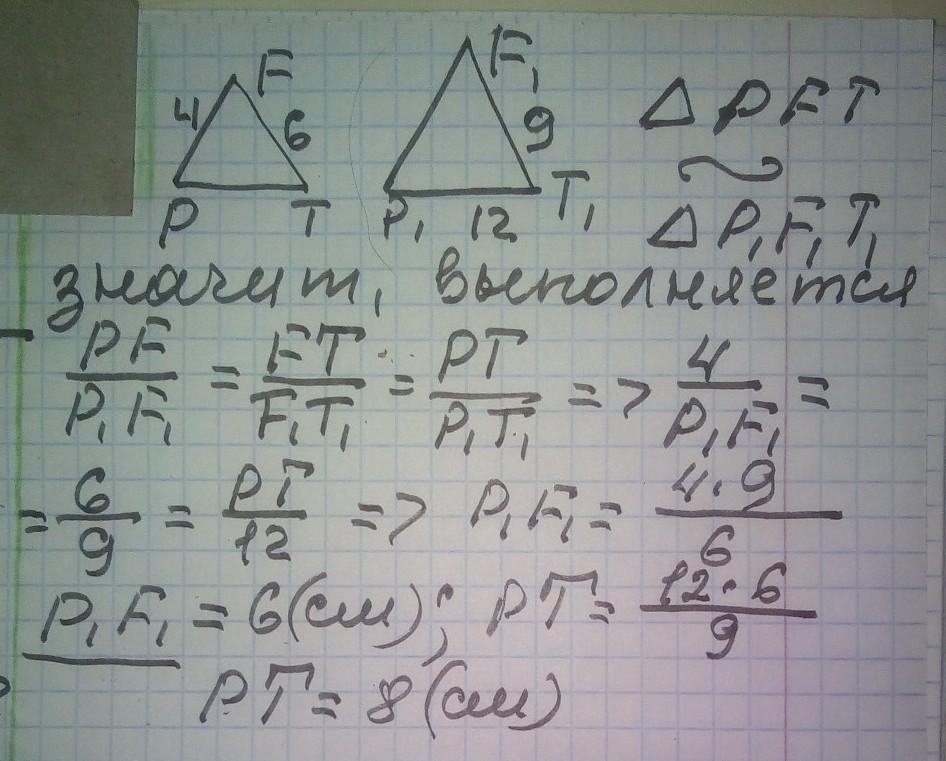 F F₁
4 6 9 △ PFT
∼
P T P₁ 12 T₁ △ P₁F₁T₁
значит, выполняется
PF/P₁F₁ = FT/F₁T₁ = PT/P₁T₁ => 4/P₁F₁ =
= 6/9 = PT/12 => P₁F₁ = 4·9/6
P₁F₁ = 6(см); PT = 12·6/9
PT = 8(см)